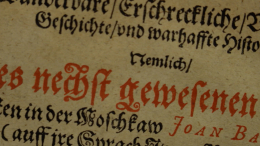 Wunderbare/Erschreckliche/
Geschichte/vnd warhaffte Histo
Nemlich/
es nechst gewesenen
ken in der Moschkaw JOAN BA
(auff jre Sprach